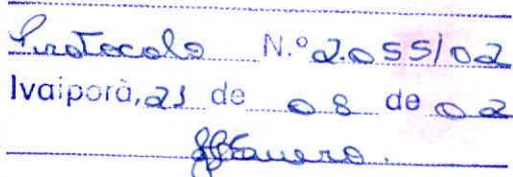 Protocolo N.º 2.055/02
Ivaiporã, 21 de 08 de 02